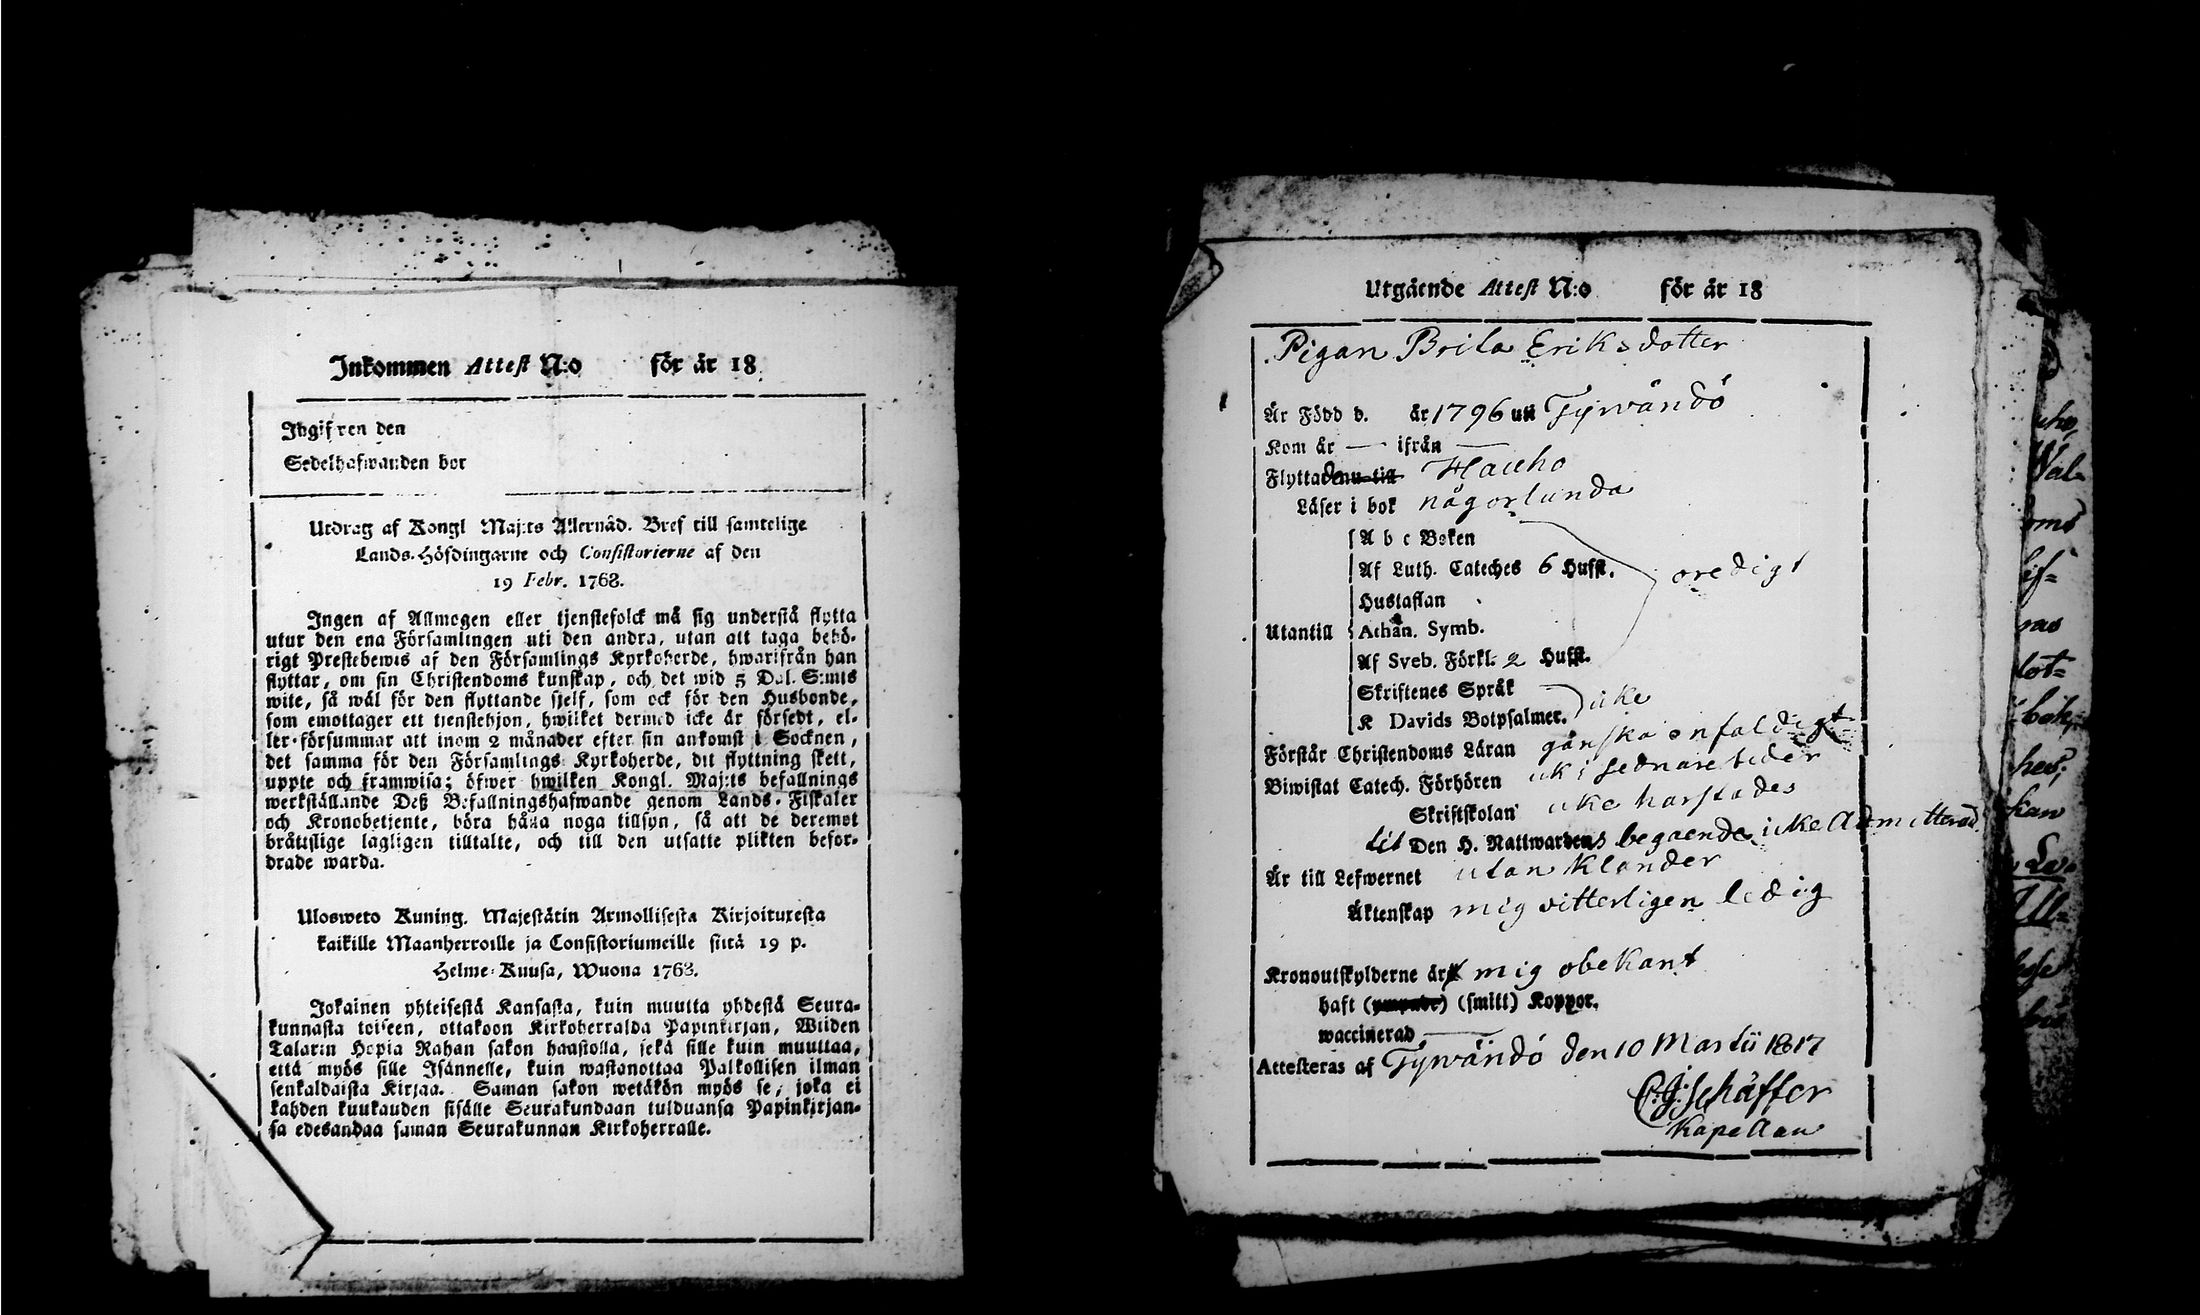 Inkommen Attest N:o för år 18
Ingifven den
Sedelhafwanden bor
Utdrag af Kongl Maj:ts Allernåd. Bref till samtelige
Lands-Höfdingarne och Consistorierne af den
19 Febr. 1768.
Ingen af Allmogen eller tjenstefolck må sig understå flytta
utur den ena Församlingen uti den andra, utan att taga behö-
rigt Prestebewis af den Församlings Kyrkoherde, hwarifrån han
flyttar, om sin Christendoms kunskap, och det wid 5 Dal. S:mts
wite, så wäl för den flyttande sjelf, som ock för den Husbonde,
som emottager ett tjenstehjon, hwilket dermed icke är försedt, el-
ler försummar att inom 2 månader efter sin ankomst i Socknen,
det samma för den Församlings Kyrkoherde, dit flyttning skett,
uppte och framwisa; öfwer hwilken Kongl. Maj:ts befallnings
werkställande Deß Befallningshafwande genom Lands-Fiskaler
och Kronobetjente, böra hålla noga tillsyn, så att de deremot
bråttslige lagligen tilltalte, och till den utsatte plikten befor-
drade warda.
Ulosweto Kuning. Majestätin Armollisesta Kirjoituxesta
kaikille Maanherroille ja Consistoriumeille siitä 19 p.
Helme-Kuusa, Wuona 1768.
Jokainen yhteisestä Kansasta, kuin muutta yhdestä Seura-
kunnasta toiseen, ottakoon Kirkoherralda Papinkirjan, Wiiden
Talarin Hopia Rahan sakon haastolla, sekä sille kuin muuttaa,
että myös sille Isännelle, kuin wastanottaa Palkollisen ilman
senkaldaista Kirjaa. Saman sakon wetäkön myös se, joka ei
kahden kuukauden sisälle Seurakundaan tulduansa Papinkirjan-
sa edesandaa saman Seurakunnan Kirkoherralle.
Utgående Attest N:o för år 18
Pigan Brita Eriksdotter
Är Född d. år 1796 uti Tyrwändö
Kom år — ifrån —
Flyttade nu till Hauho
Läser i bok någorlunda
A b c Boken
Af Luth. Cateches 6 Hufst. oredigt
Hustaflan
Utantill Athan. Symb.
Af Sveb. Förkl. 2 Hufst.
Skriftenes Språk
K Davids Botpsalmer. icke
Förstår Christendoms Läran gånska enfaldigt
Biwistat Catech. Förhören icke i sednare tider
Skriftskolan icke harstädes
till Den H. Nattwardens begaende icke Admitterad
Är till Lefwernet utan klander
Äktenskap mig vitterligen ledig
Kronoutskylderne är mig obekant
haft (ympade) (smitt) Koppor.
waccinerad —
Attesteras af Tyrwändö den 10 Martii 1817
C.J. Schäffer
Kapellan